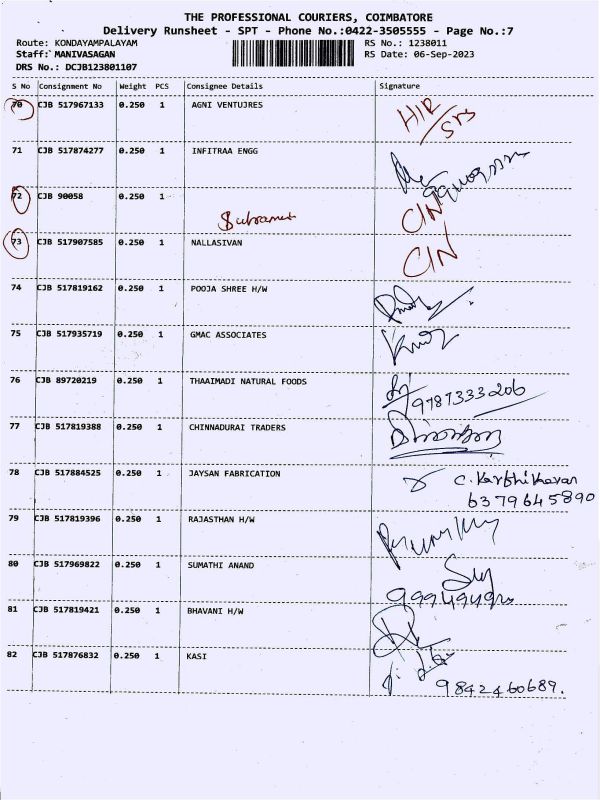 THE PROFESSIONAL COURIERS, COIMBATORE
Delivery Runsheet - SPT - Phone No.:0422-3505555 - Page No.:7
Route: KONDAYAMPALAYAM RS No.: 1238011
Staff: MANIVASAGAN RS Date: 06-Sep-2023
DRS No.: DCJB123801107
S No Consignment No Weight PCS Consignee Details Signature
70 CJB 517967133 0.250 1 AGNI VENTUJRES
71 CJB 517874277 0.250 1 INFITRAA ENGG
72 CJB 90058 0.250 1 C/N
73 CJB 517907585 0.250 1 NALLASIVAN C/N
74 CJB 517819162 0.250 1 POOJA SHREE H/W
75 CJB 517935719 0.250 1 GMAC ASSOCIATES
76 CJB 89720219 0.250 1 THAAIMADI NATURAL FOODS
9787333206
77 CJB 517819388 0.250 1 CHINNADURAI TRADERS
78 CJB 517884525 0.250 1 JAYSAN FABRICATION C. Karthikeyan
6379645890
79 CJB 517819396 0.250 1 RAJASTHAN H/W
80 CJB 517969822 0.250 1 SUMATHI ANAND
81 CJB 517819421 0.250 1 BHAVANI H/W
82 CJB 517876832 0.250 1 KASI
9842460689.